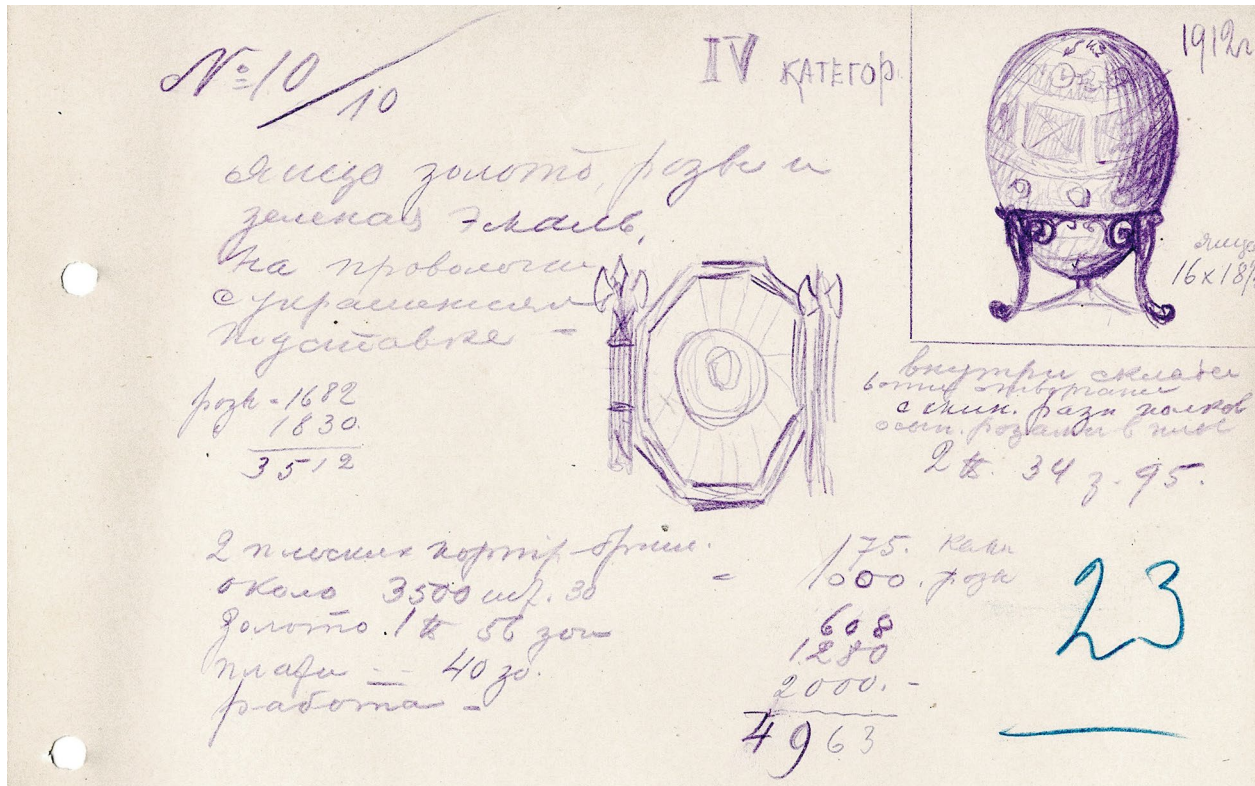 №10/10
IV КАТЕГОР.
1912г
яйцо золото, розы и
зеленая эмаль,
на проволочн
с украшениям
подставке -
яйцо
16x18
розы - 1682
1830.
3512
внутри складн
с мин. разн полков
розами в
2 ф. 34 з. 95.
2 плоских портр. брил. 175. камн
около 3500 шт. 30 - 1000. розы
Золото 1 ф 56 зол 608
плат - 40 зо. 1280
работа - 2000. -
4963
23